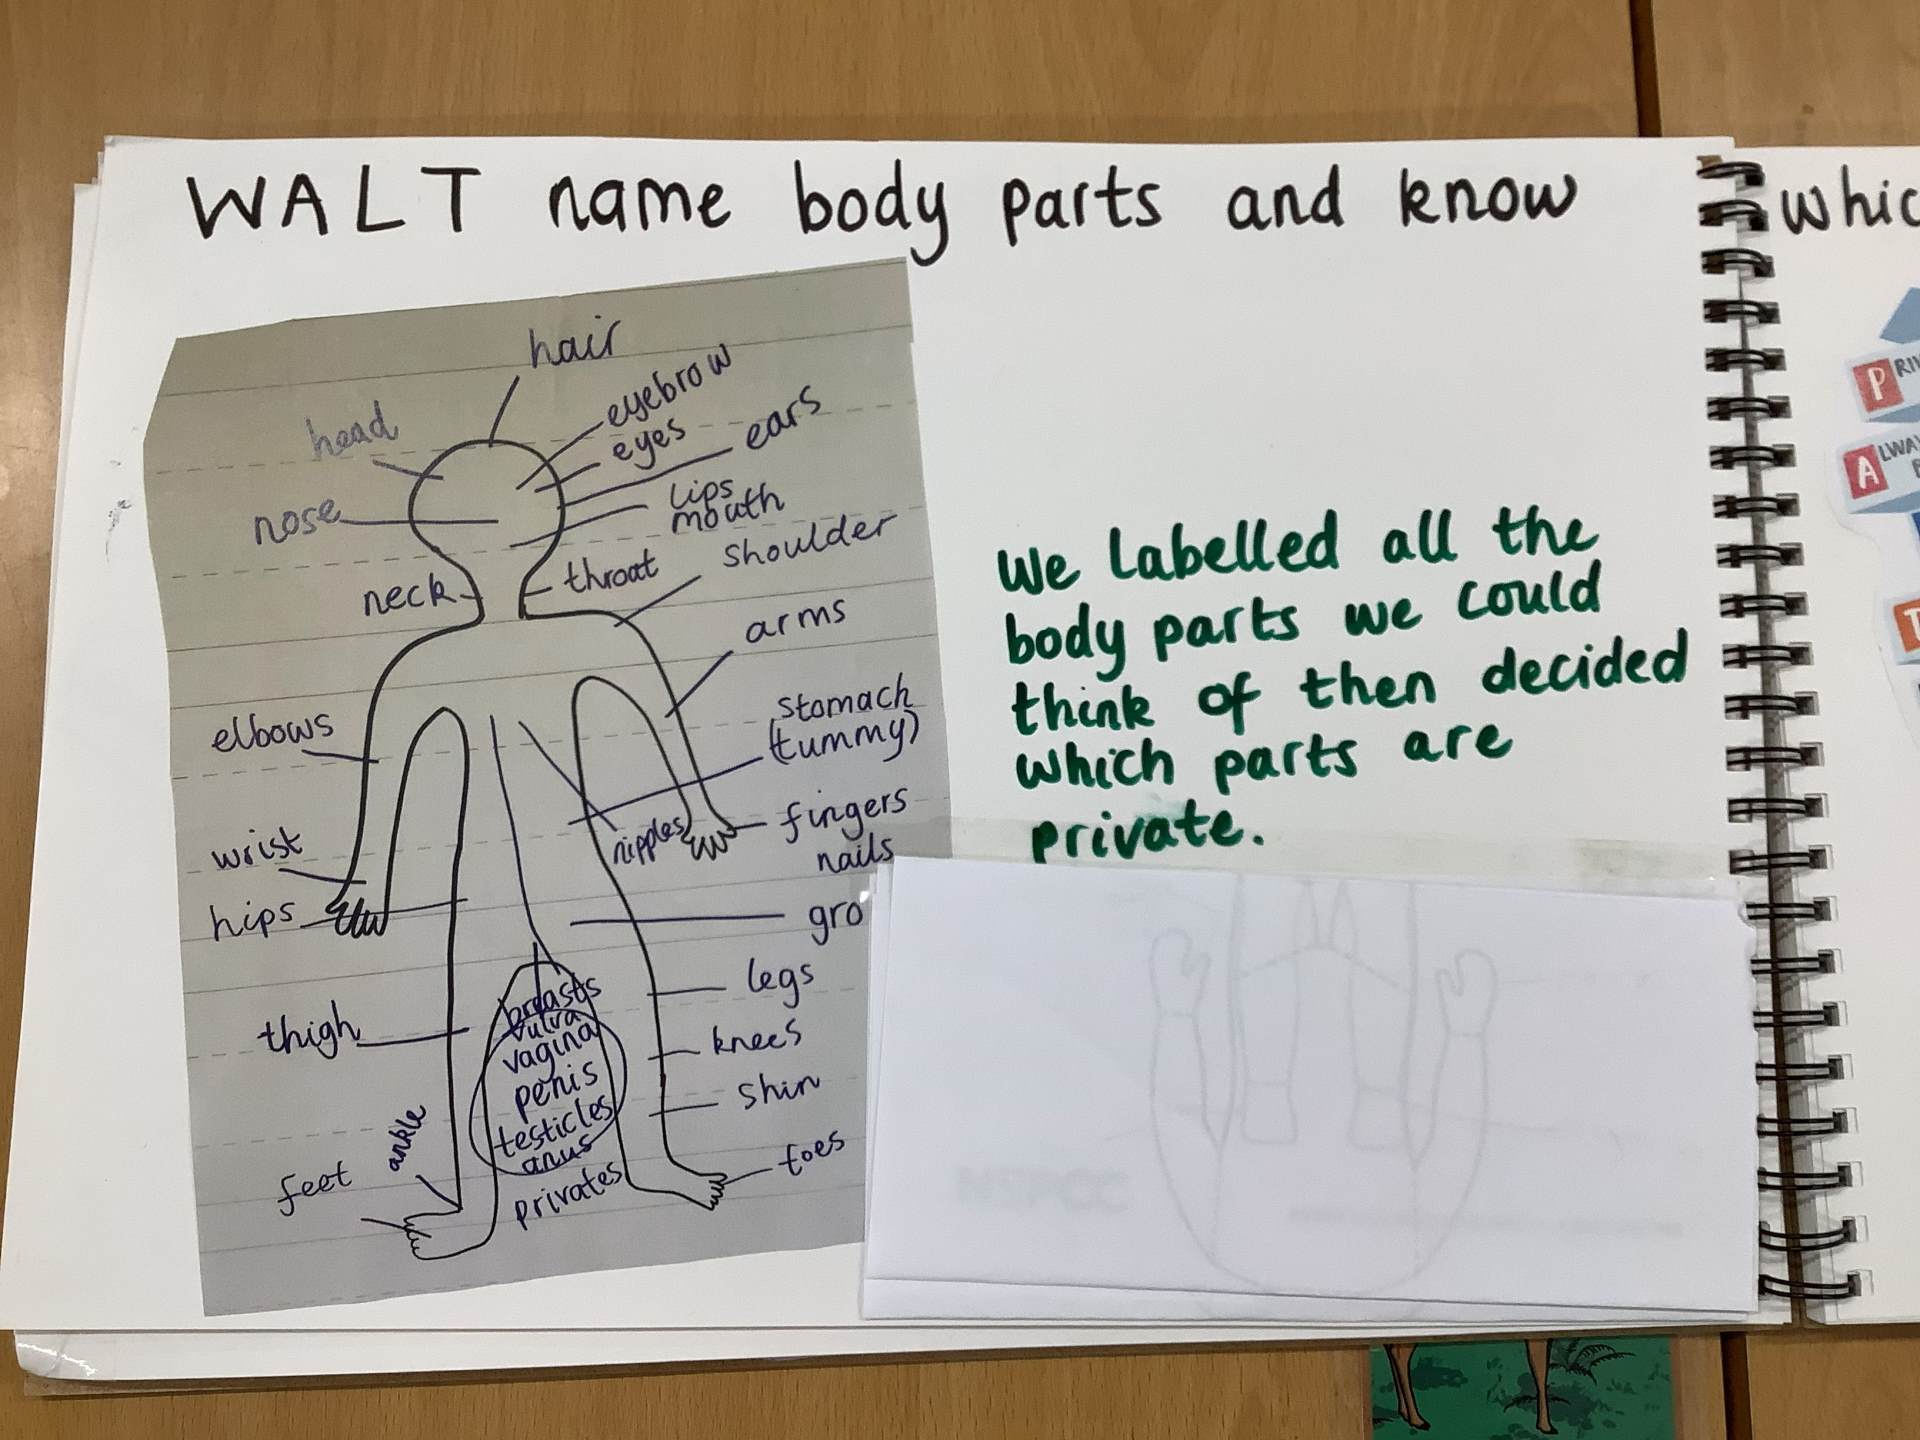 WALT name body parts and know
whic
hair
eyebrow
head
eyes
ears
nose
lips
mouth
shoulder
neck
throat
arms
elbows
stomach
(tummy)
wrist
nipples
fingers
nails
hips
gro
breasts
vulva
vagina
penis
testicles
anus
privates
legs
thigh
knees
shin
ankle
toes
feet
We labelled all the
body parts we could
think of then decided
which parts are
private.
NSPCC
P
A LWA
T